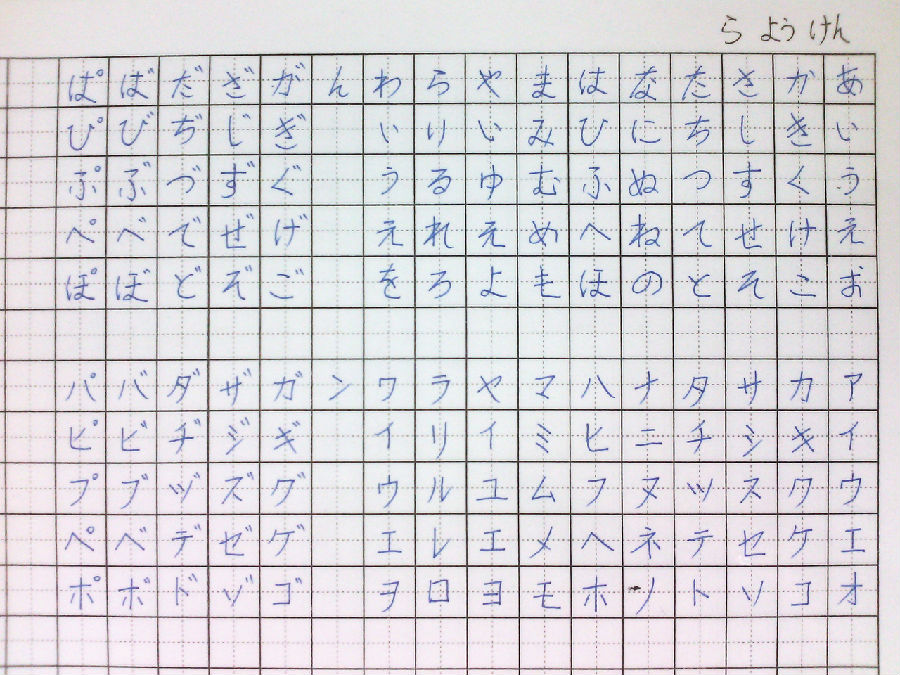 ら よう けん
あいうえお
かきくけこ
さしすせそ
たちつてと
なにぬねの
はひふへほ
まみむめも
やいゆえよ
らりるれろ
わいうえを
ん
がぎぐげご
ざじずぜぞ
だぢづでど
ばびぶべぼ
ぱぴぷぺぽ
アイウエオ
カキクケコ
サシスセソ
タチツテト
ナニヌネノ
ハヒフヘホ
マミムメモ
ヤイユエヨ
ラリルレロ
ワイウエヲ
ン
ガギグゲゴ
ザジズゼゾ
ダヂヅデド
バビブベボ
パピプペポ